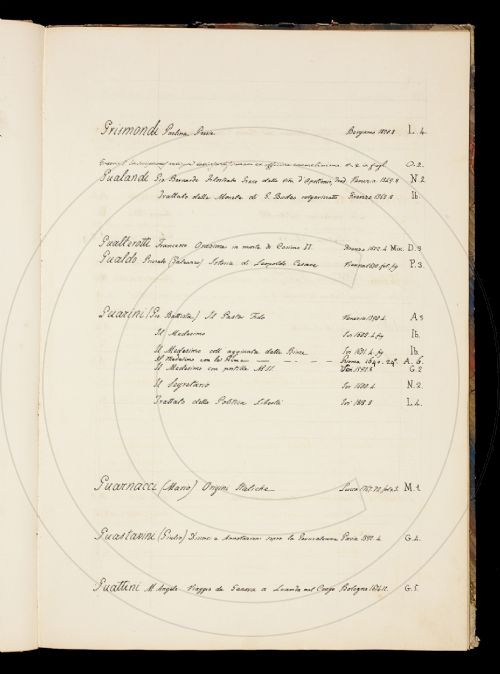 Grismondi Paolina Poesie Bergamo 1820 8 L. 4.
O. 2.
Gualandi Gio Bernardo Filostrato Greco della Vita d'Apollonio, Trad. Venezia 1549. 8 N. 2
Trattato delle Monete di G. Budeo volgarizzato Firenze 1562. 8 Ib.
Gualterotti Francesco Orazione in morte di Cosimo II. Firenze 4 Mis. D. 3
Gualdo Priorato (Galeazzo) Istoria di Leopoldo Cesare Vienna 1670 fol. fig P. 3.
Guarini (Gio Battista) Il Pastor Fido Venezia 1590. 4. A 3
Il Medesimo Ivi 1602. 4. fig Ib.
Il Medesimo coll aggiunta delle Rime Ivi 1621. 4. fig Ib
Il Medesimo con le Rime Roma 1640. 24º A. 6.
Il Medesimo con postille M.SS. G. 2
Il Segretario Ivi 1600. 4. N. 2.
Trattato della Politica Libertà Ivi 1818. 8 L. 4.
Guarnacci (Mario) Origini Italiche Lucca 1767. 72 fol. 3. M. 1
Guastavini (Giulio) Discorsi e Annotazioni sopra la Gerusalemme Pavia 1592. 4. G. 4.
Guattini M. Angelo Viaggio da Genova a Loanda nel Congo Bologna G. 5.